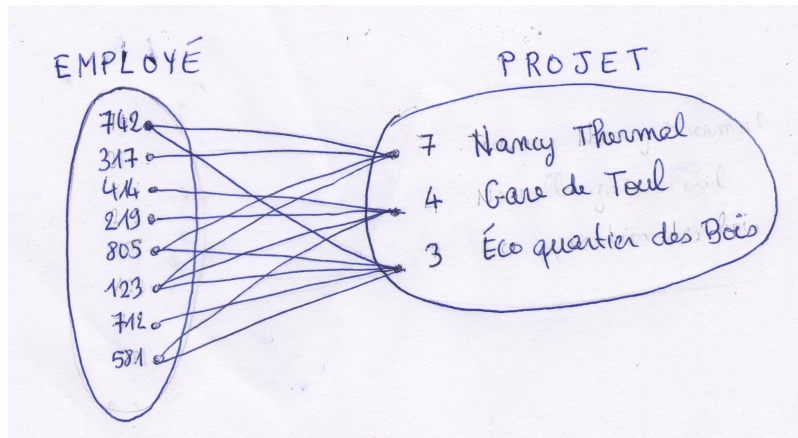 EMPLOYÉ
PROJET
742
317
414
219
805
123
712
581
7 Nancy Thermal
4 Gare de Toul
3 Éco quartier des Bois